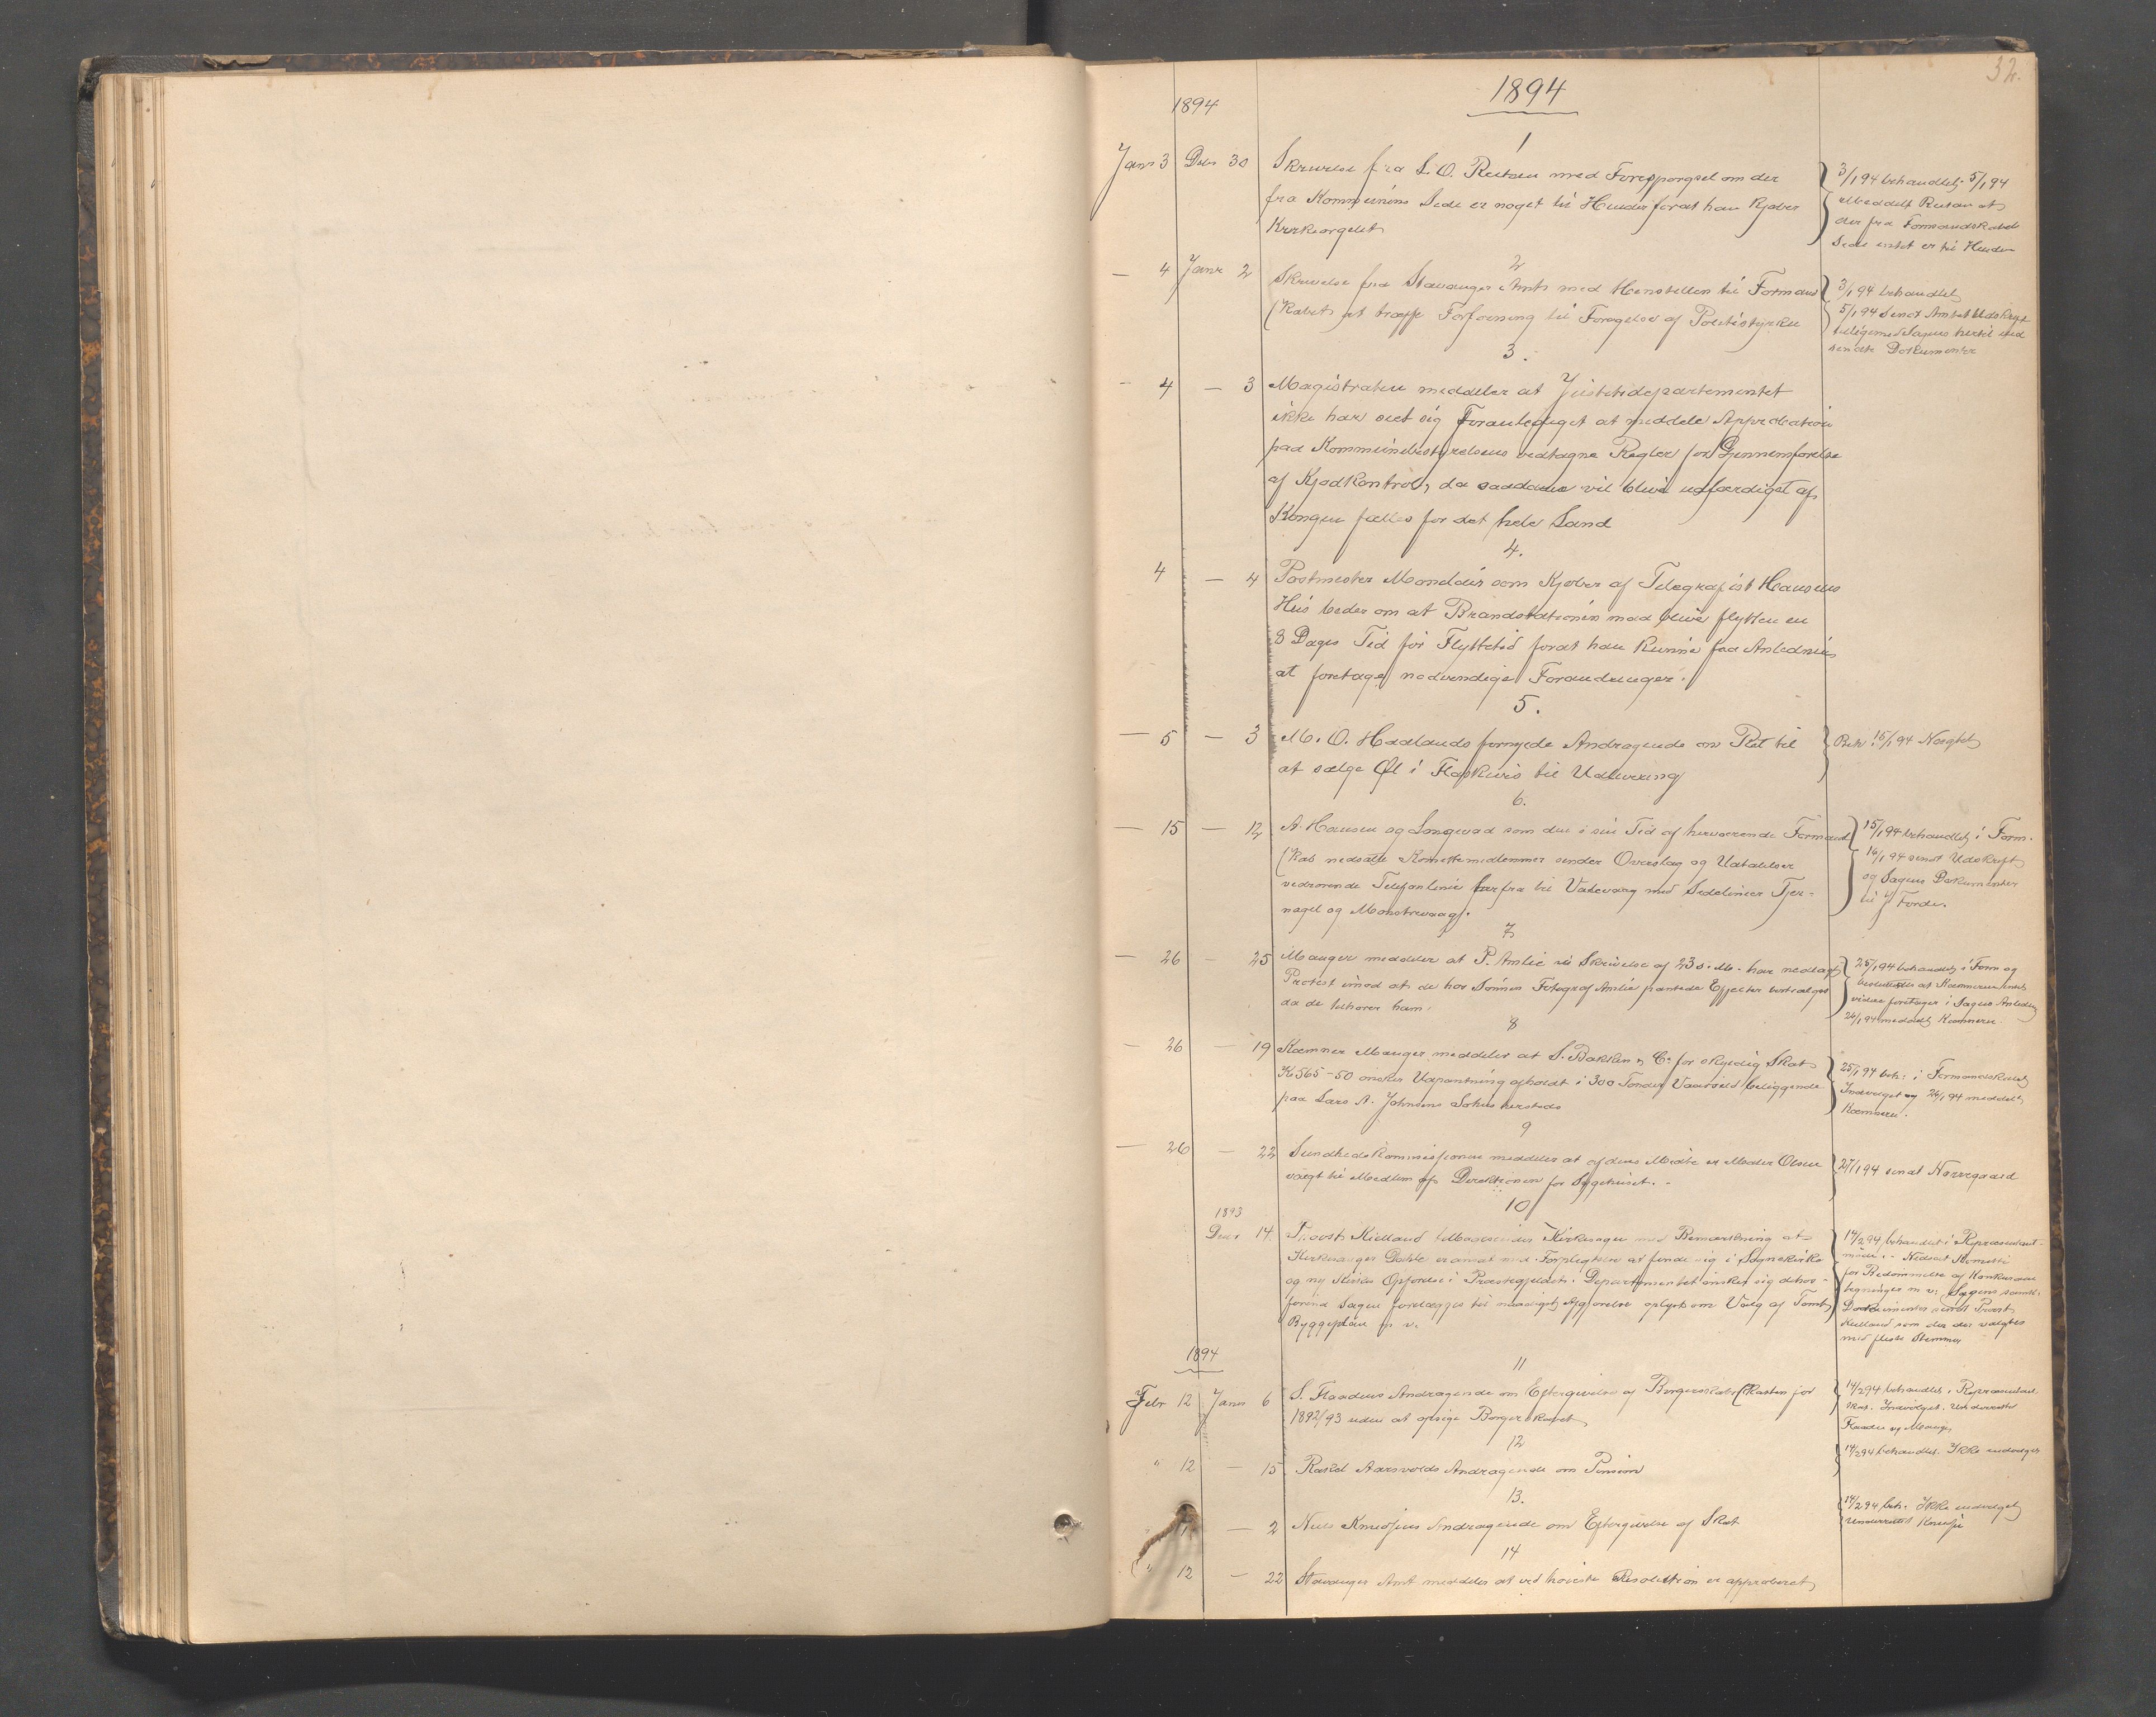 32.
1894
1894
1
Janr 3 Debr 30 Skrivelse fra L. O. Reitan med Forespørgsel om der
fra Kommunens Side er noget til Hinder fordi han Kjøber
Kirkeorgelet
3/1 94 behandlet 5/1 94
Meddelt Reitan at
der fra Formandskabets
Side intet er til Hinder
2
— 4 Janr 2 Skrivelse fra Stavanger Amt med Henstillen til Formand
skabet at træffe Forføining til Forøgelse af Politistyrken
3/1 94 behandlet
5/1 94 Sendt Amtet Udskrift
tilligemed Sagens hertil ind
sendte Dokumenter
3.
— 4 — 3 Magistraten meddeler at Justitsdepartementet
ikke har seet sig Foranlediget at meddele Approbation
paa Kommunebestyrelsens vedtagne Regler for Gjennemførelse
af Kjødkontrol, da saadanne vil blive udfærdiget af
Kongen fælles for det hele Land
4.
4 — 4 Postmester Mandár som Kjøber af Telegrafist Hansens
Hus beder om at Brandstationen maa blive flyttet en
8 Dages Tid før Flyttetid fordi han kunne faa Anledning
at foretage nødvendige Forandringer.
5.
— 5 — 3 M. O. Haalands fornyede Andragende om Ret til
at sælge Øl i Flaskevis til Udlevering
Beh. 15/1 94 Nægtet
6.
— 15 — 12 A. Hansen og Langvad som den i sin Tid af herværende Formand
skab nedsatte Komitemedlemmer sender Overslag og Udtalelser
vedrørende Telefonlinie herfra til Valevaag med Sidelinier Tjer-
nagel og Mosstrevaag.
15/1 94 behandlet i Form.
16/1 94 sendt Udskrift
og Sagens Dokumenter
til J Førde.
7
— 26 — 25 Mauger meddeler at P. Amlie vis Skrivelse af 23 d. M. har nedlagt
Protest imod at de hos Sønnen Fotograf Amlie pantede Effecter bortsælges
da de tilhører ham.
25/1 94 behandlet i Form og
besluttedes at Kæmneren intet
videre foretager i Sagens Anledn
26/1 94 meddelt Kæmneren.
8
— 26 — 19 Kæmner Mauger meddeler at S. Bakken & Co for skyldig Skat
Kr 565-50 ønsker Udpantning afholdt i 300 Tønder Vaarsild beliggende
paa Lars A. Johnsens Søhus hersteds
25/1 94 beh. i Formandskabet
Indvilget og 26/1 94 meddelt
Kæmneren.
9
— 26 — 22 Sundhedskommissionen meddeler at af dens Midte er Mæler Olsen
valgt til Medlem af Direktionen for Sygehuset.
27/1 94 sendt Nørregaard
10
1893
Debr 14 Provst Kielland tilbagesender Kirkesagen med Bemærkning at
Kirkesanger Dahle er ansat med Forpligtelse at finde sig i Sognekirke
og ny Kirkes Opførelse i Præstegjeldet. Departementet ønsker sig dehos -
forind Sagen forelægges til naadigst Afgjørelse oplyst om Valg af Tomt
Byggeplan m v.
14/2 94 behandlet i Repræsentant-
møde. - Nedsat Komité
for Bedømmelse af Konkurance
tegninger m v. Sagens saml.
Dokumenter sendt Provst
Kielland som den der valgtes
med fleste Stemmer
1894
11
Febr 12 Janr 6 S. Flaadens Andragende om Eftergivelse af Borgerskabsskatten for
1892/93 uden at opsige Borgerskabet
14/2 94 behandlet i Repræsentant
skab. Indvilget. Underrettet
Flaaden og Mauger
12
" 12 — 15 Rakel Aarsvolds Andragende om Pension
14/2 94 behandlet. Ikke indvilget
13.
— 2 Nils Knudsens Andragende om Eftergivelse af Skat
14/2 94 beh. Ikke indvilget
Underrettet Knudsen
14
" 12 — 22 Stavanger Amt meddeler at ved høieste Resolution er approberet